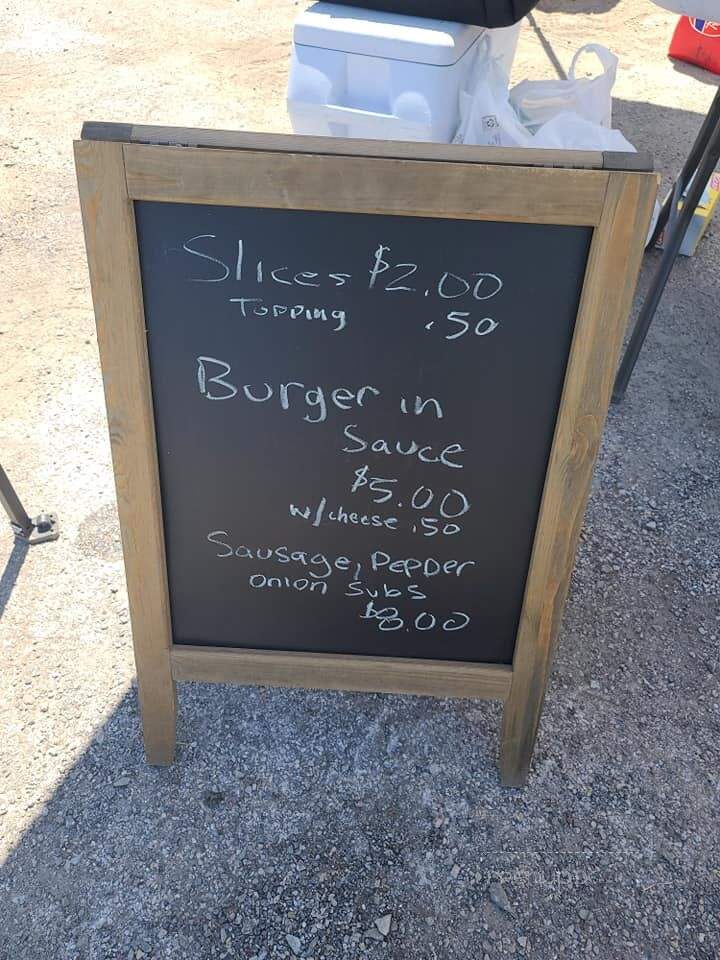 Slices $2.00
Topping .50
Burger in
Sauce
$5.00
w/cheese .50
Sausage, Pepper
onion subs
$8.00